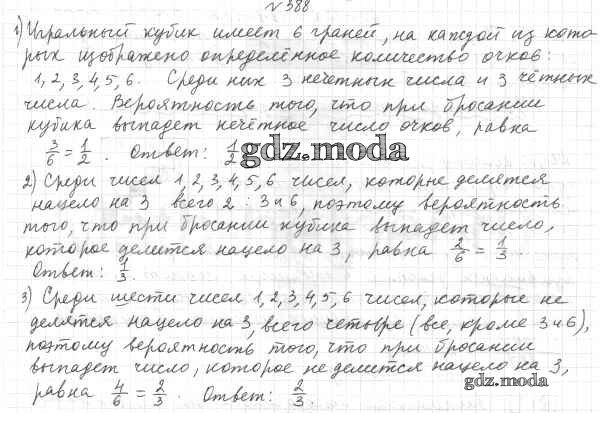 № 588
1) Игральный кубик имеет 6 граней, на каждой из кото-
рых изображено определённое количество очков:
1, 2, 3, 4, 5, 6. Среди них 3 нечётных числа и 3 чётных
числа. Вероятность того, что при бросании
кубика выпадет нечётное число очков, равна
3/6 = 1/2. Ответ: 1/2
gdz.moda
2) Среди чисел 1, 2, 3, 4, 5, 6 чисел, которые делятся
нацело на 3 всего 2 : 3 и 6, поэтому вероятность
того, что при бросании кубика выпадет число,
которое делится нацело на 3, равна 2/6 = 1/3.
Ответ: 1/3.
3) Среди шести чисел 1, 2, 3, 4, 5, 6 чисел, которые не
делятся нацело на 3, всего четыре (все, кроме 3 и 6),
поэтому вероятность того, что при бросании
выпадет число, которое не делится нацело на 3,
равна 4/6 = 2/3. Ответ: 2/3
gdz.moda